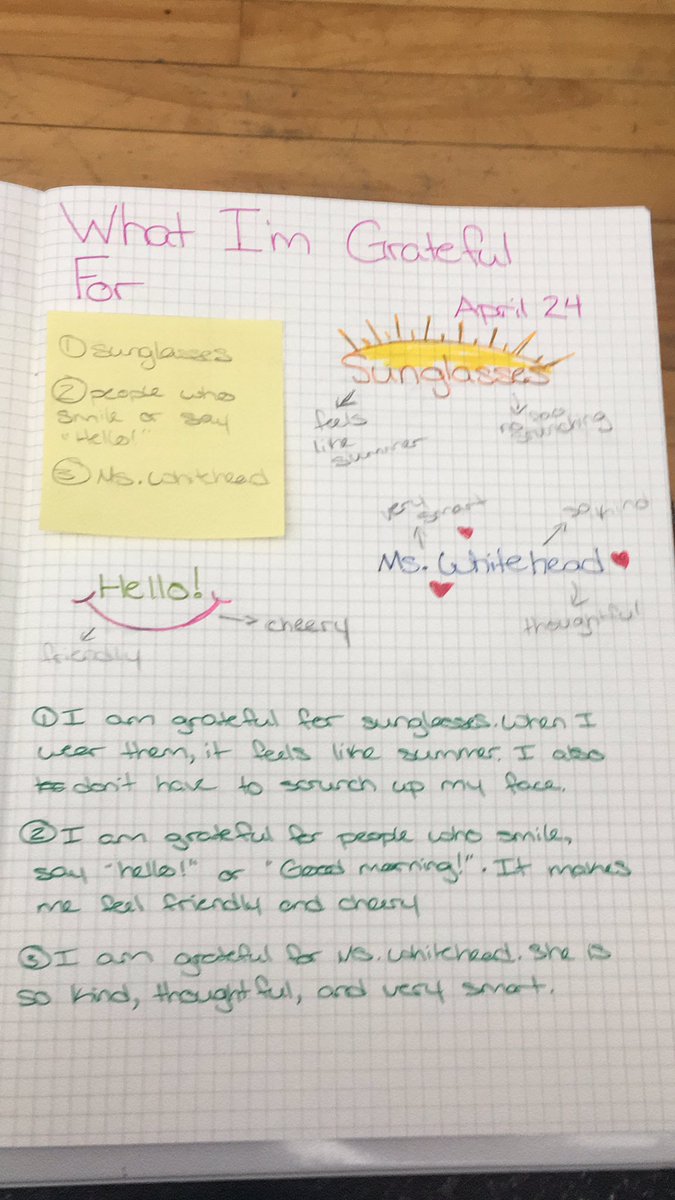 What I'm Grateful
For
April 24
① sunglasses
② people who
smile or say
"Hello!"
③ Ms. Whitehead
Sunglasses
feels
like
summer
no scrunching
very
smart
so kind
Ms. Whitehead
thoughtful
Hello!
cheery
friendly
① I am grateful for sunglasses. When I
wear them, it feels like summer. I also
don't have to scrunch up my face.
② I am grateful for people who smile,
say "hello!" or "Good morning!". It makes
me feel friendly and cheery
③ I am grateful for Ms. Whitehead. She is
so kind, thoughtful, and very smart.